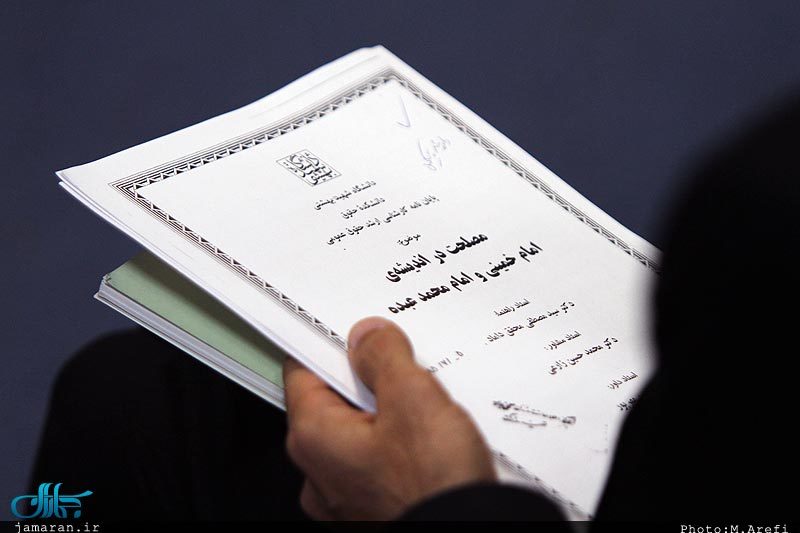 دانشگاه شهید بهشتی
دانشکدهٔ حقوق
پایان نامه کارشناسی ارشد حقوق عمومی
موضوع:
مصلحت در اندیشه‌ی
امام خمینی و امام محمد عبده
استاد راهنما
دکتر سید مصطفی محقق داماد
استاد مشاور:
دکتر محمد حسین زارعی
استاد داور:
jamaran.ir
Photo:M.Arefi